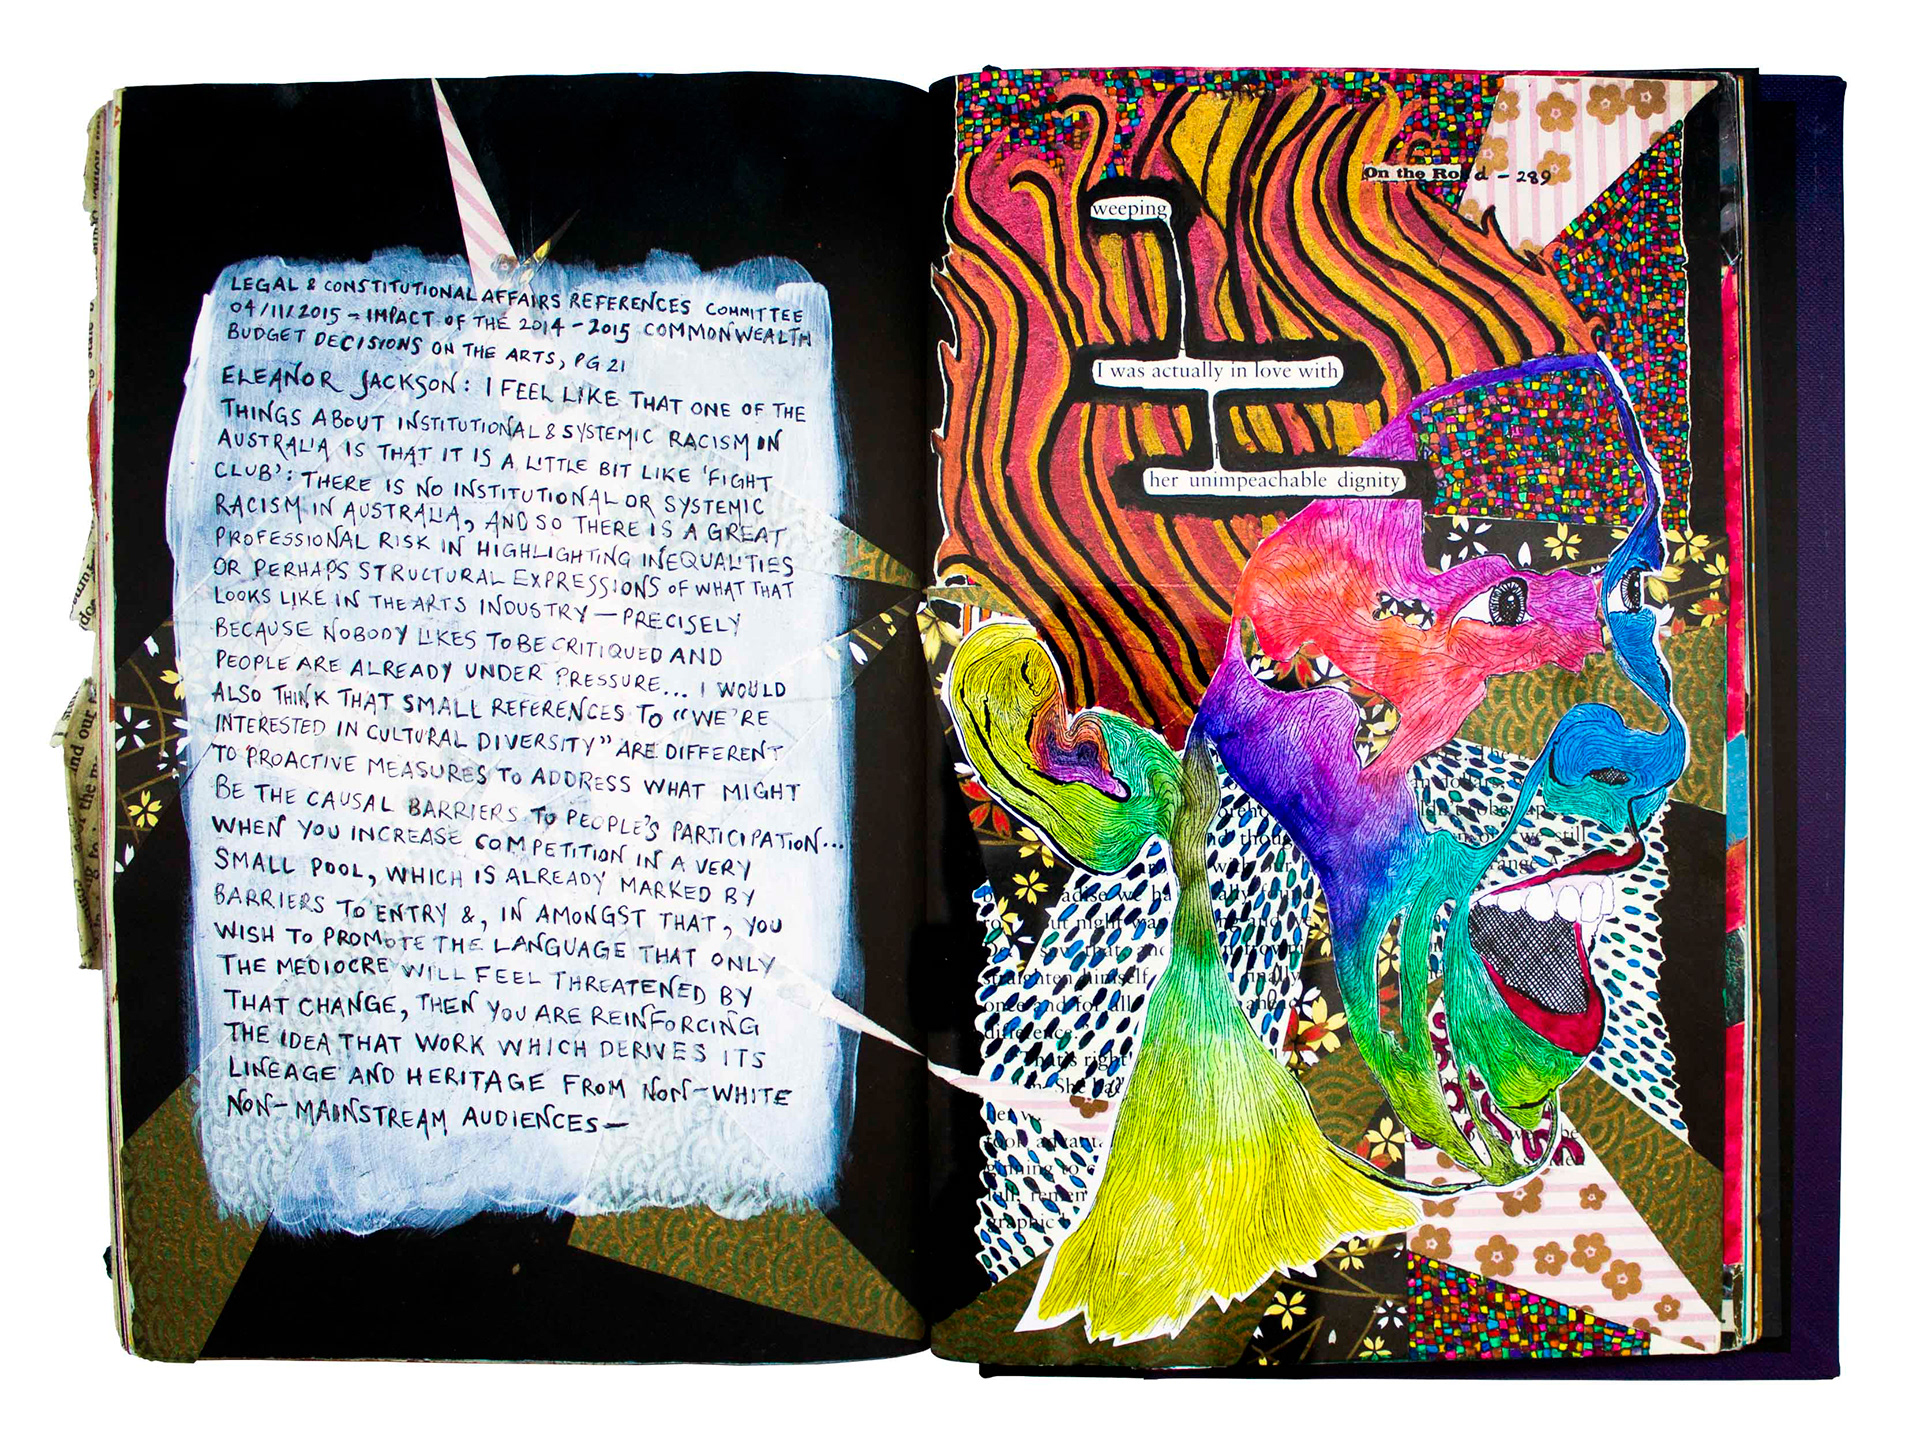 LEGAL & CONSTITUTIONAL AFFAIRS REFERENCES COMMITTEE
04/11/2015 - IMPACT OF THE 2014-2015 COMMONWEALTH
BUDGET DECISIONS ON THE ARTS, PG 21
ELEANOR JACKSON: I FEEL LIKE THAT ONE OF THE
THINGS ABOUT INSTITUTIONAL & SYSTEMIC RACISM IN
AUSTRALIA IS THAT IT IS A LITTLE BIT LIKE 'FIGHT
CLUB': THERE IS NO INSTITUTIONAL OR SYSTEMIC
RACISM IN AUSTRALIA, AND SO THERE IS A GREAT
PROFESSIONAL RISK IN HIGHLIGHTING INEQUALITIES
OR PERHAPS STRUCTURAL EXPRESSIONS OF WHAT THAT
LOOKS LIKE IN THE ARTS INDUSTRY — PRECISELY
BECAUSE NOBODY LIKES TO BE CRITIQUED AND
PEOPLE ARE ALREADY UNDER PRESSURE... I WOULD
ALSO THINK THAT SMALL REFERENCES TO "WE'RE
INTERESTED IN CULTURAL DIVERSITY" ARE DIFFERENT
TO PROACTIVE MEASURES TO ADDRESS WHAT MIGHT
BE THE CAUSAL BARRIERS TO PEOPLE'S PARTICIPATION...
WHEN YOU INCREASE COMPETITION IN A VERY
SMALL POOL, WHICH IS ALREADY MARKED BY
BARRIERS TO ENTRY &, IN AMONGST THAT, YOU
WISH TO PROMOTE THE LANGUAGE THAT ONLY
THE MEDIOCRE WILL FEEL THREATENED BY
THAT CHANGE, THEN YOU ARE REINFORCING
THE IDEA THAT WORK WHICH DERIVES ITS
LINEAGE AND HERITAGE FROM NON-WHITE
NON-MAINSTREAM AUDIENCES—
On the Road - 289
weeping
I was actually in love with
her unimpeachable dignity
straighten himself
once and for all
difference."
That's right
She had
graphic